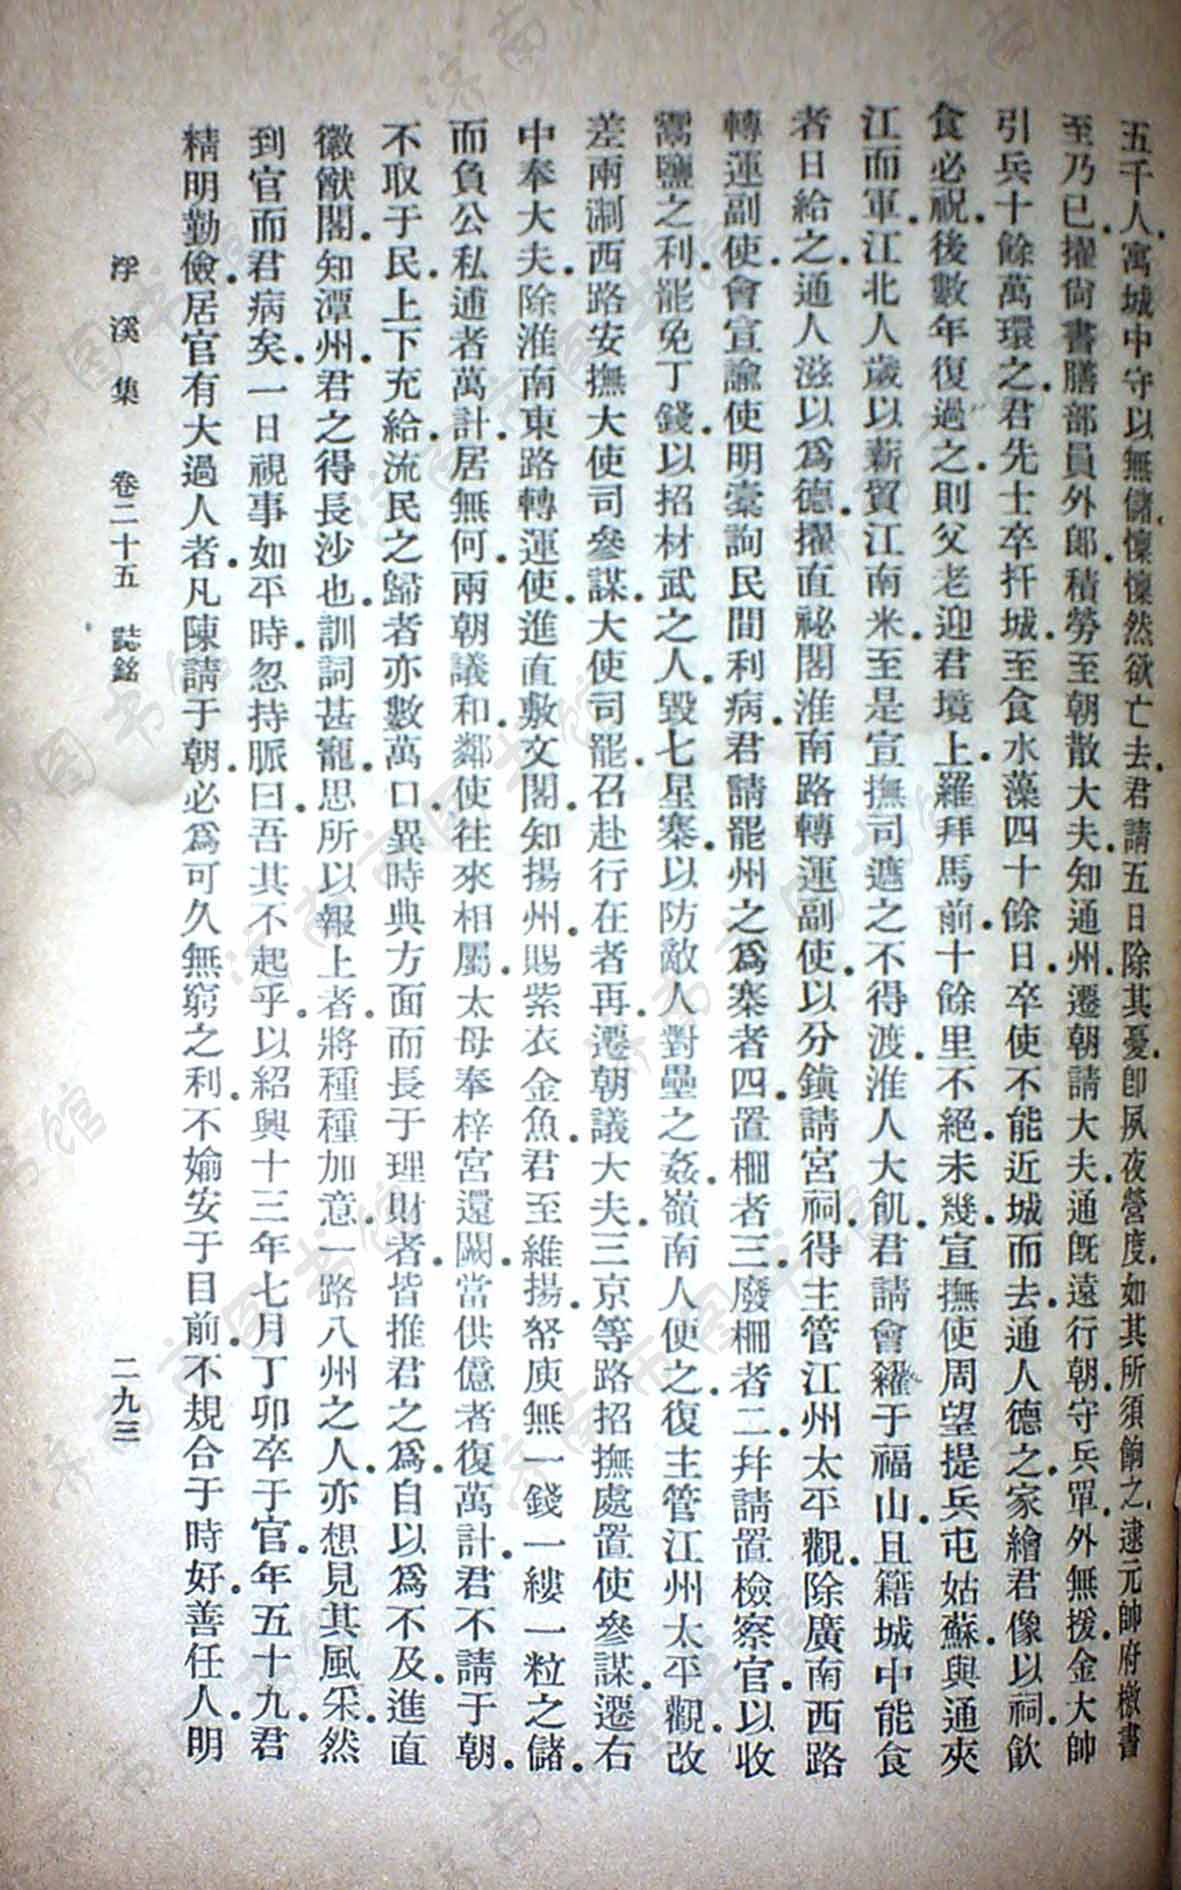 五千人.寓城中.守以無儲.懍懍然欲亡去.君請五日除其憂.卽夙夜營度.如其所須餉之.逮元帥府檄書
至乃已.擢尙書膳部員外郞.積勞至朝散大夫.知通州.遷朝請大夫.通旣遠行朝.守兵單.外無援.金大帥
引兵十餘萬環之.君先士卒扞城.至食水藻四十餘日.卒使不能近城而去.通人德之.家繪君像以祠.飮
食必祝.後數年復過之.則父老迎君境上.羅拜馬前.十餘里不絕.未幾.宣撫使周望提兵屯姑蘇.與通夾
江而軍.江北人歲以薪貿江南米.至是宣撫司遮之不得渡.淮人大飢.君請會糴于福山.且籍城中能食
者日給之.通人滋以爲德.擢直祕閣淮南路轉運副使.以分鎭請宮祠.得主管江州太平觀.除廣南西路
轉運副使.會宣諭使明橐詢民間利病.君請罷州之爲寨者四.置柵者三.廢柵者二.幷請置檢察官.以收
鬻鹽之利.罷免丁錢.以招材武之人.毀七星寨.以防敵人對壘之姦.嶺南人便之.復主管江州太平觀.改
差兩淛西路安撫大使司參謀.大使司罷.召赴行在者再.遷朝議大夫.三京等路招撫處置使參謀.遷右
中奉大夫.除淮南東路轉運使.進直敷文閣.知揚州.賜紫衣金魚.君至維揚.帑庾無一錢一縷一粒之儲.
而負公私逋者萬計.居無何.兩朝議和.鄰使往來相屬.太母奉梓宮還闕.當供億者復萬計.君不請于朝.
不取于民.上下充給.流民之歸者亦數萬口.異時典方面而長于理財者.皆推君之爲.自以爲不及.進直
徽猷閣.知潭州.君之得長沙也.訓詞甚寵.思所以報上者.將種種加意.一路八州之人.亦想見其風采.然
到官而君病矣.一日視事如平時.忽持脈曰.吾其不起乎.以紹興十三年七月丁卯卒于官.年五十九.君
精明勤儉.居官有大過人者.凡陳請于朝.必爲可久無窮之利.不媮安于目前.不規合于時好.善任人.明
浮溪集 卷二十五 誌銘 二九三